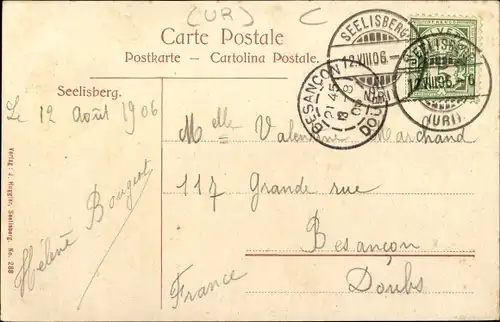 (UR) C
Carte Postale
Postkarte - Cartolina Postale.
Seelisberg.
Le 12 Août 1906
Hélène Bougeot
SEELISBERG
12.VIII.06.
(URI)
SEELISBERG
12.VIII.06.
(URI)
BESANÇON
21 45
13 -8
06
DOUBS
Melle Valentine Marchand
117 Grande rue
Besançon
Doubs
France
Verlag: J. Huggler, Seelisberg. No. 288